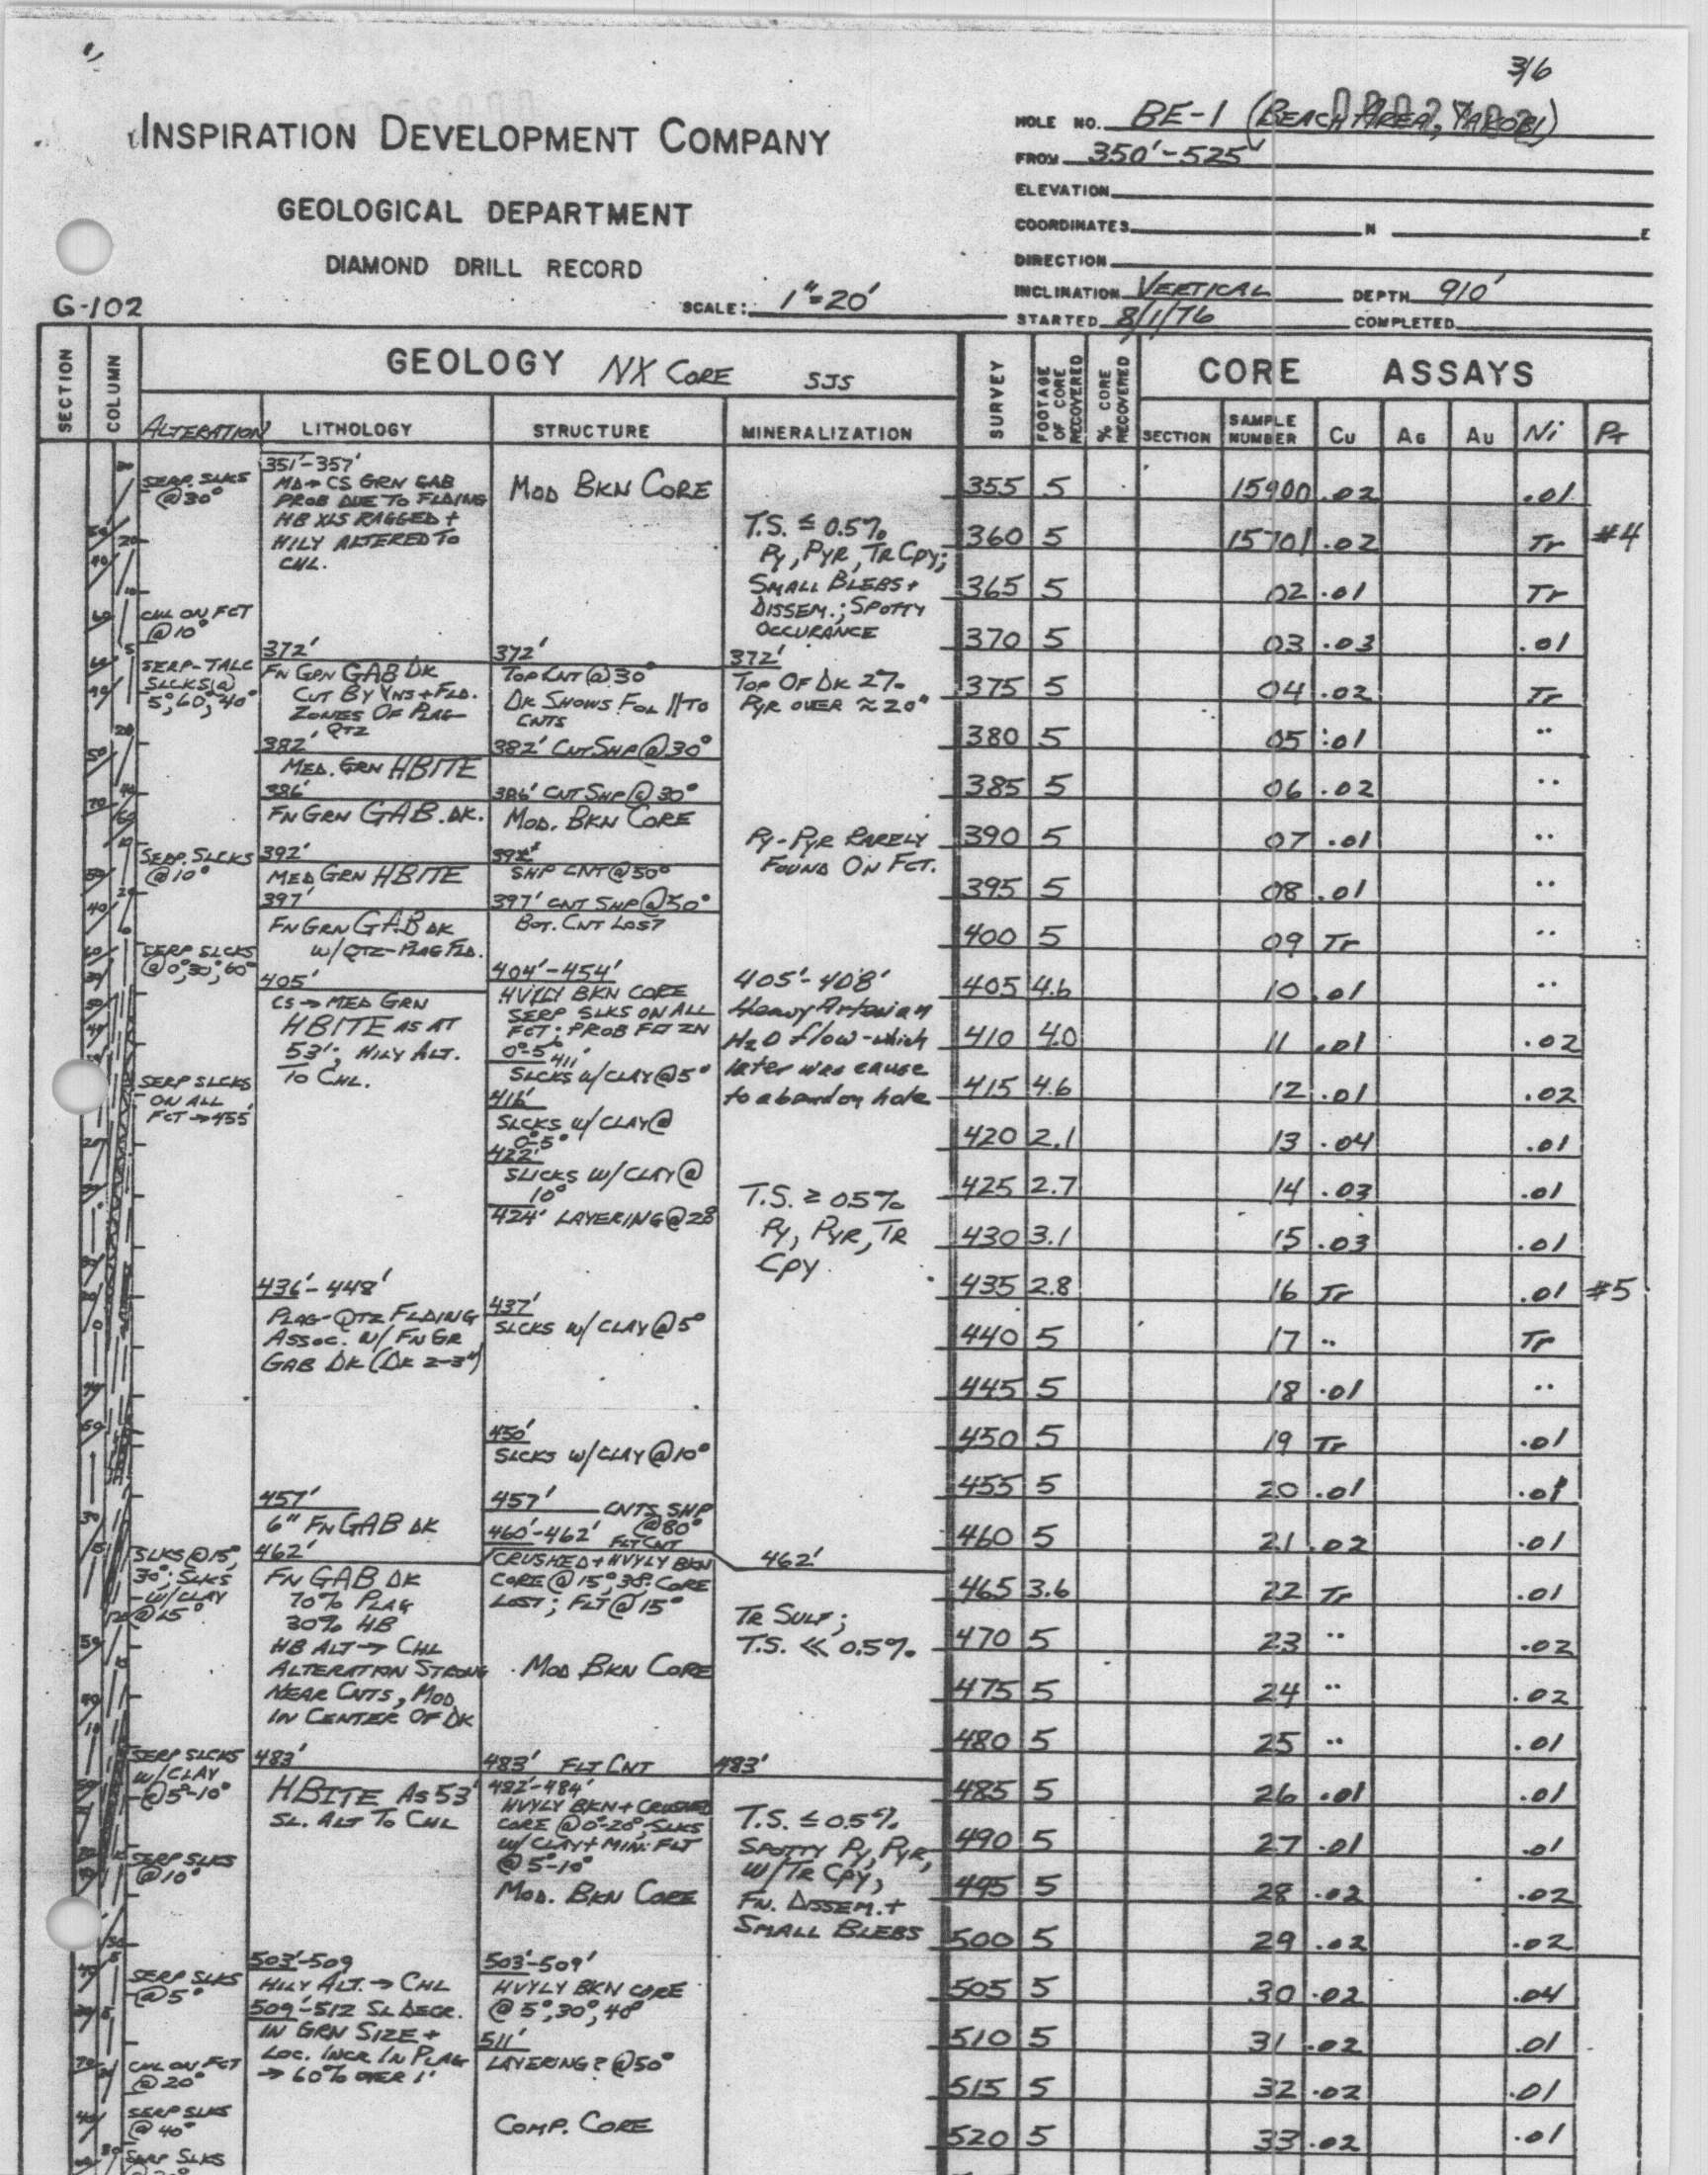 3/6
INSPIRATION DEVELOPMENT COMPANY
GEOLOGICAL DEPARTMENT
DIAMOND DRILL RECORD
G-102
SCALE: 1"=20'
HOLE NO. BE-1 (BEACH AREA, YAKOBI)
FROM 350'-525'
ELEVATION
COORDINATES N E
DIRECTION
INCLINATION VERTICAL DEPTH 910'
STARTED 8/1/76 COMPLETED
SECTION
COLUMN
GEOLOGY NX CORE SJS
SURVEY
FOOTAGE OF CORE RECOVERED
% CORE RECOVERED
CORE ASSAYS
ALTERATION LITHOLOGY STRUCTURE MINERALIZATION
SECTION SAMPLE NUMBER Cu AG AU Ni Pt
SERP. SLKS
@30°
CHL ON FCT
@10°
SERP-TALC
SLCKS @
5°, 60°, 40°
SERP. SLCKS
@10°
SERP SLCKS
@0°, 30°, 60°
SERP SLCKS
ON ALL
FCT → 455'
SLKS @15°,
30°; SLKS
W/CLAY
@15°
SERP SLCKS
W/CLAY
@5°-10°
SERP SLKS
@10°
SERP SLKS
@5°
CHL ON FCT
@20°
SERP SLKS
@40°
SERP SLKS
351'-357'
MD → CS GRN GAB
PROB DUE TO FLDING
HB XLS RAGGED +
HILY ALTERED TO
CHL.
372'
FN GRN GAB DK
CUT BY VNS + FLD.
ZONES OF PLAG-
QTZ
382'
MED. GRN HBITE
386'
FN GRN GAB. DK.
392'
MED GRN HBITE
397'
FN GRN GAB DK
W/QTZ-PLAG FLD.
405'
CS → MED GRN
HBITE AS AT
53'; HILY ALT.
TO CHL.
436'-448'
PLAG-QTZ FLDING
ASSOC. W/ FN GR
GAB DK (DK 2-3")
457'
6" FN GAB DK
462'
FN GAB DK
70% PLAG
30% HB
HB ALT → CHL
ALTERATION STRONG
NEAR CNTS, MOD
IN CENTER OF DK
483'
HBITE AS 53'
SL. ALT TO CHL
503'-509
HILY ALT. → CHL
509'-512 SL DECR.
IN GRN SIZE +
LOC. INCR IN PLAG
→ 60% OVER 1'
MOD BKN CORE
372'
TOP CNT @30°
DK SHOWS FOL // TO
CNTS
382' CNT SHP @30°
386' CNT SHP @30°
MOD. BKN CORE
392'
SHP CNT @50°
397' CNT SHP @50°
BOT. CNT LOST
404'-454'
HVYLY BKN CORE
SERP SLKS ON ALL
FCT; PROB FLT ZN
0°-5°
411'
SLCKS W/CLAY @5°
SLCKS W/CLAY @
0°-5°
422'
SLICKS W/CLAY @
10°
424' LAYERING @28°
437'
SLCKS W/CLAY @5°
450'
SLCKS W/CLAY @10°
457' CNTS SHP
@80°
460'-462' FLT CNT
CRUSHED + HVYLY BKN
CORE @15°, CORE
LOST; FLT @15°
MOD BKN CORE
483' FLT CNT
482'-484'
HVYLY BKN + CRUSHED
CORE @0°-20°, SLKS
W/CLAY + MIN. FLT
@5°-10°
MOD. BKN CORE
503'-509'
HVYLY BKN CORE
@5°, 30°, 40°
511'
LAYERING? @50°
COMP. CORE
T.S. ≤ 0.5%
Py, PYR, TR CPY;
SMALL BLEBS +
DISSEM.; SPOTTY
OCCURANCE
372'
TOP OF DK 2%
PYR OVER ≈20"
Py-PYR RARELY
FOUND ON FCT.
405'-408'
Heavy Artesian
H2O flow-which
later was cause
to abandon hole
T.S. ≥ 0.5%
Py, PYR, TR
CPY
462'
TR SULF;
T.S. << 0.5%
483'
T.S. ≤ 0.5%
SPOTTY Py, PYR,
W/TR CPY,
FN. DISSEM. +
SMALL BLEBS
355 5 15900 .02 .01
360 5 15701 .02 Tr #4
365 5 02 .01 Tr
370 5 03 .03 .01
375 5 04 .02 Tr
380 5 05 .01 ..
385 5 06 .02 ..
390 5 07 .01 ..
395 5 08 .01 ..
400 5 09 Tr ..
405 4.6 10 .01 ..
410 4.0 11 .01 .02
415 4.6 12 .01 .02
420 2.1 13 .04 .01
425 2.7 14 .03 .01
430 3.1 15 .03 .01
435 2.8 16 Tr .01 #5
440 5 17 .. Tr
445 5 18 .01 ..
450 5 19 Tr .01
455 5 20 .01 .01
460 5 21 .02 .01
465 3.6 22 Tr .01
470 5 23 .. .02
475 5 24 .. .02
480 5 25 .. .01
485 5 26 .01 .01
490 5 27 .01 .01
495 5 28 .02 .02
500 5 29 .02 .02
505 5 30 .02 .04
510 5 31 .02 .01
515 5 32 .02 .01
520 5 33 .02 .01